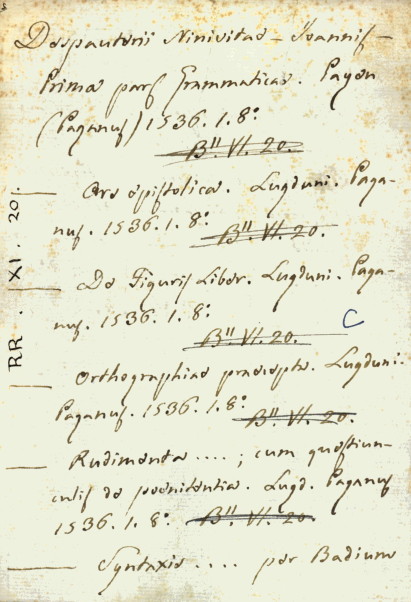 Despauterii Ninivitae – Ioannis –
Prima pars Grammaticae. Payen
(Paganus) 1536. 1. 8°
B". VI. 20.
— Ars epistolica. Lugduni. Paga-
nus. 1536. 1. 8°
B". VI. 20.
— De Figuris Liber. Lugduni. Paga-
nus. 1536. 1. 8°
B". VI. 20.
C
— Orthographiae praecepta. Lugduni.
Paganus. 1536. 1. 8°
B". VI. 20.
— Rudimenta ....; cum quaestiun-
culis de poenitentia. Lugd. Paganus
1536. 1. 8° B". VI. 20.
— Syntaxis .... per Badium
RR. XI. 20.